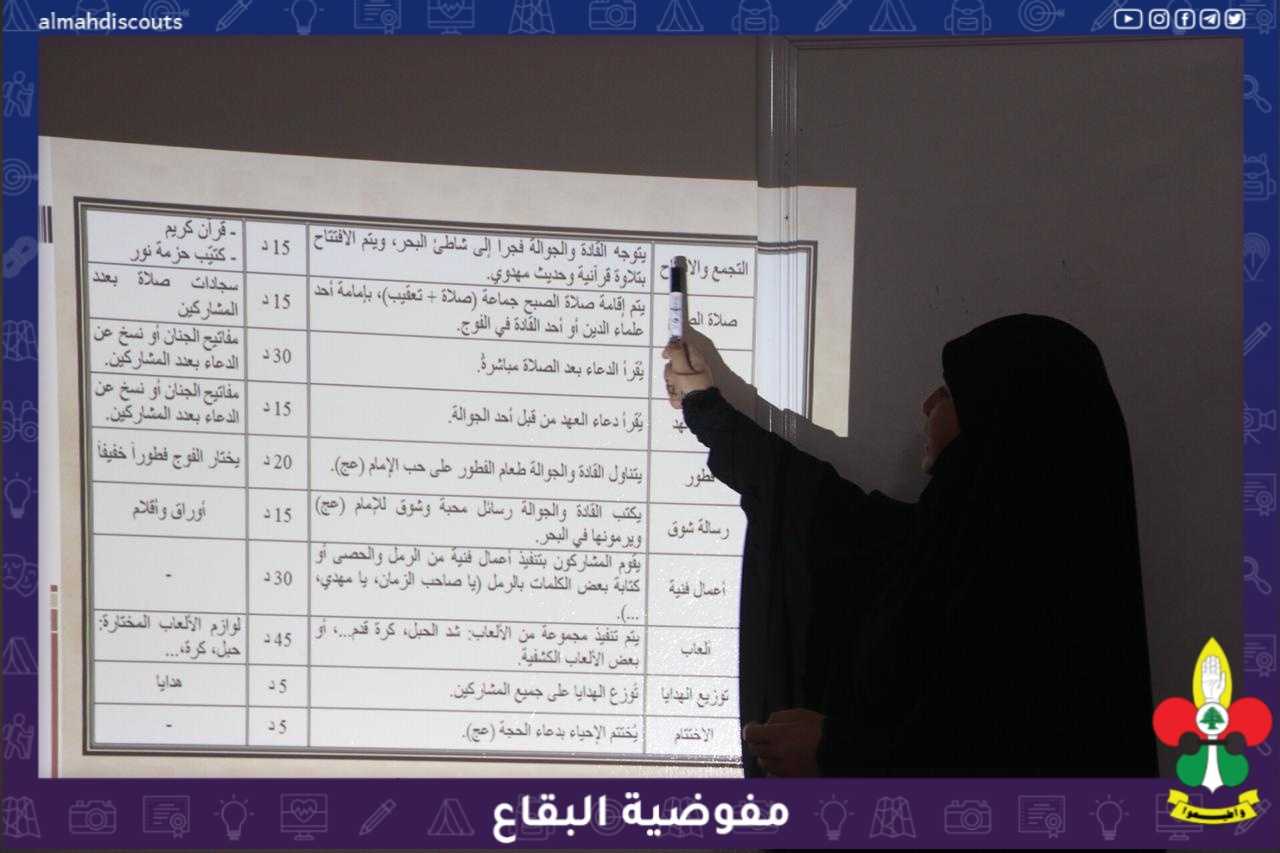 almahdiscouts
التجمع والا
يتوجه القادة والجوالة فجراً إلى شاطئ البحر، ويتم الافتتاح
بتلاوة قرآنية وحديث مهدوي.
15 د
- قرآن كريم
- كتيّب حزمة نور
صلاة
يتم إقامة صلاة الصبح جماعة (صلاة + تعقيب)، بإمامة أحد
علماء الدين أو أحد القادة في الفوج.
15 د
سجادات صلاة بعدد
المشاركين
يُقرأ الدعاء بعد الصلاة مباشرةً.
30 د
مفاتيح الجنان أو نسخ عن
الدعاء بعدد المشاركين.
يُقرأ دعاء العهد من قبل أحد الجوالة.
15 د
مفاتيح الجنان أو نسخ عن
الدعاء بعدد المشاركين.
فطور
يتناول القادة والجوالة طعام الفطور على حب الإمام (عج).
20 د
يختار الفوج فطوراً خفيفاً
رسالة شوق
يكتب القادة والجوالة رسائل محبة وشوق للإمام (عج)
ويرمونها في البحر.
15 د
أوراق وأقلام
أعمال فنية
يقوم المشاركون بتنفيذ أعمال فنية من الرمل والحصى أو
كتابة بعض الكلمات بالرمل (يا صاحب الزمان، يا مهدي،
...).
30 د
-
ألعاب
يتم تنفيذ مجموعة من الألعاب: شد الحبل، كرة قدم...، أو
بعض الألعاب الكشفية.
45 د
لوازم الألعاب المختارة:
حبل، كرة،...
توزيع الهدايا
تُوزع الهدايا على جميع المشاركين.
5 د
هدايا
الاختتام
يُختتم الإحياء بدعاء الحجة (عج).
5 د
-
مفوضية البقاع